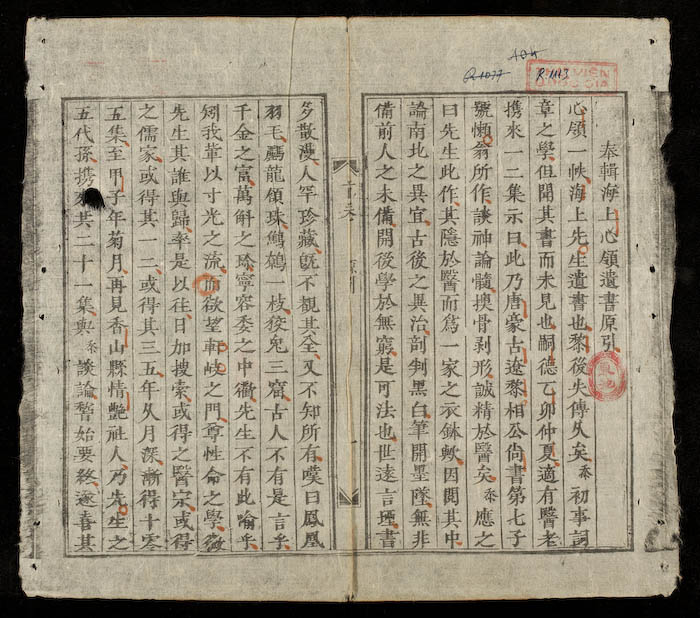 R.1113
奉輯海上心領遺書原引
心領一帙海上先生遺書也黎後失傳久矣 初事詞
章之學但聞其書而未見也嗣德乙卯仲夏適有醫老
携來一二集示曰此乃唐豪古遼黎相公尚書第七子
號懶翁所作談神論髓換骨剥形誠精於醫矣 應之
曰先生此作其隱於醫而爲一家之衣鉢歟因閱其中
論南北之異宜古後之異治剖判黑白筆開墨墜無非
備前人之未備開後學於無窮是可法也世遠言堙書
首卷
原引
多散漫人罕珍藏旣不覩其全又不知所有嘆曰鳳凰
羽毛驪龍頷珠鷦鷯一枝狡兎三窟古人不有是言乎
千金之富萬斛之珍寧容委之中衢先生不有此喻乎
矧我輩以寸光之流而欲望軒岐之門尊性命之學微
先生其誰與歸率是以徃日加搜索或得之醫宗或得
之儒家或得其一二或得其三五年久月深漸得十零
五集至甲子年菊月再見香山縣情艷祖人乃先生之
五代孫携來其二十一集與 談論暫始要終遂喜其